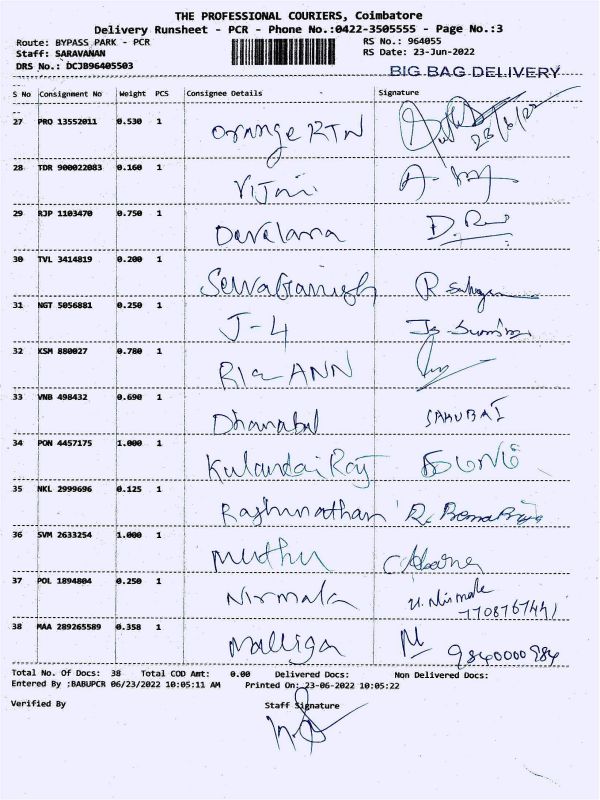 THE PROFESSIONAL COURIERS, Coimbatore
Delivery Runsheet - PCR - Phone No.:0422-3505555 - Page No.:3
Route: BYPASS PARK - PCR RS No.: 964055
Staff: SARAVANAN RS Date: 23-Jun-2022
DRS No.: DCJB96405503
BIG BAG DELIVERY
S No Consignment No Weight PCS Consignee Details Signature
27 PRO 13552011 0.530 1 Orange RTN 23/6/22
28 TDR 900022083 0.160 1
29 RJP 1103470 0.750 1
30 TVL 3414819 0.200 1 SelvaGanish
31 NGT 5056881 0.250 1 J-4
32 KSM 880027 0.780 1 ANN
33 VNB 498432 0.690 1 Dhanabal SAHUBAI
34 PON 4457175 1.000 1 Kulandai Raj
35 NKL 2999696 0.125 1 Raghunathan
36 SVM 2633254 1.000 1 Muthu
37 POL 1894804 0.250 1 Nirmala N. Nirmala
7708767441
38 MAA 289265589 0.358 1 Malliga M 9840000984
Total No. Of Docs: 38 Total COD Amt: 0.00 Delivered Docs: Non Delivered Docs:
Entered By :BABUPCR 06/23/2022 10:05:11 AM Printed On: 23-06-2022 10:05:22
Verified By Staff Signature